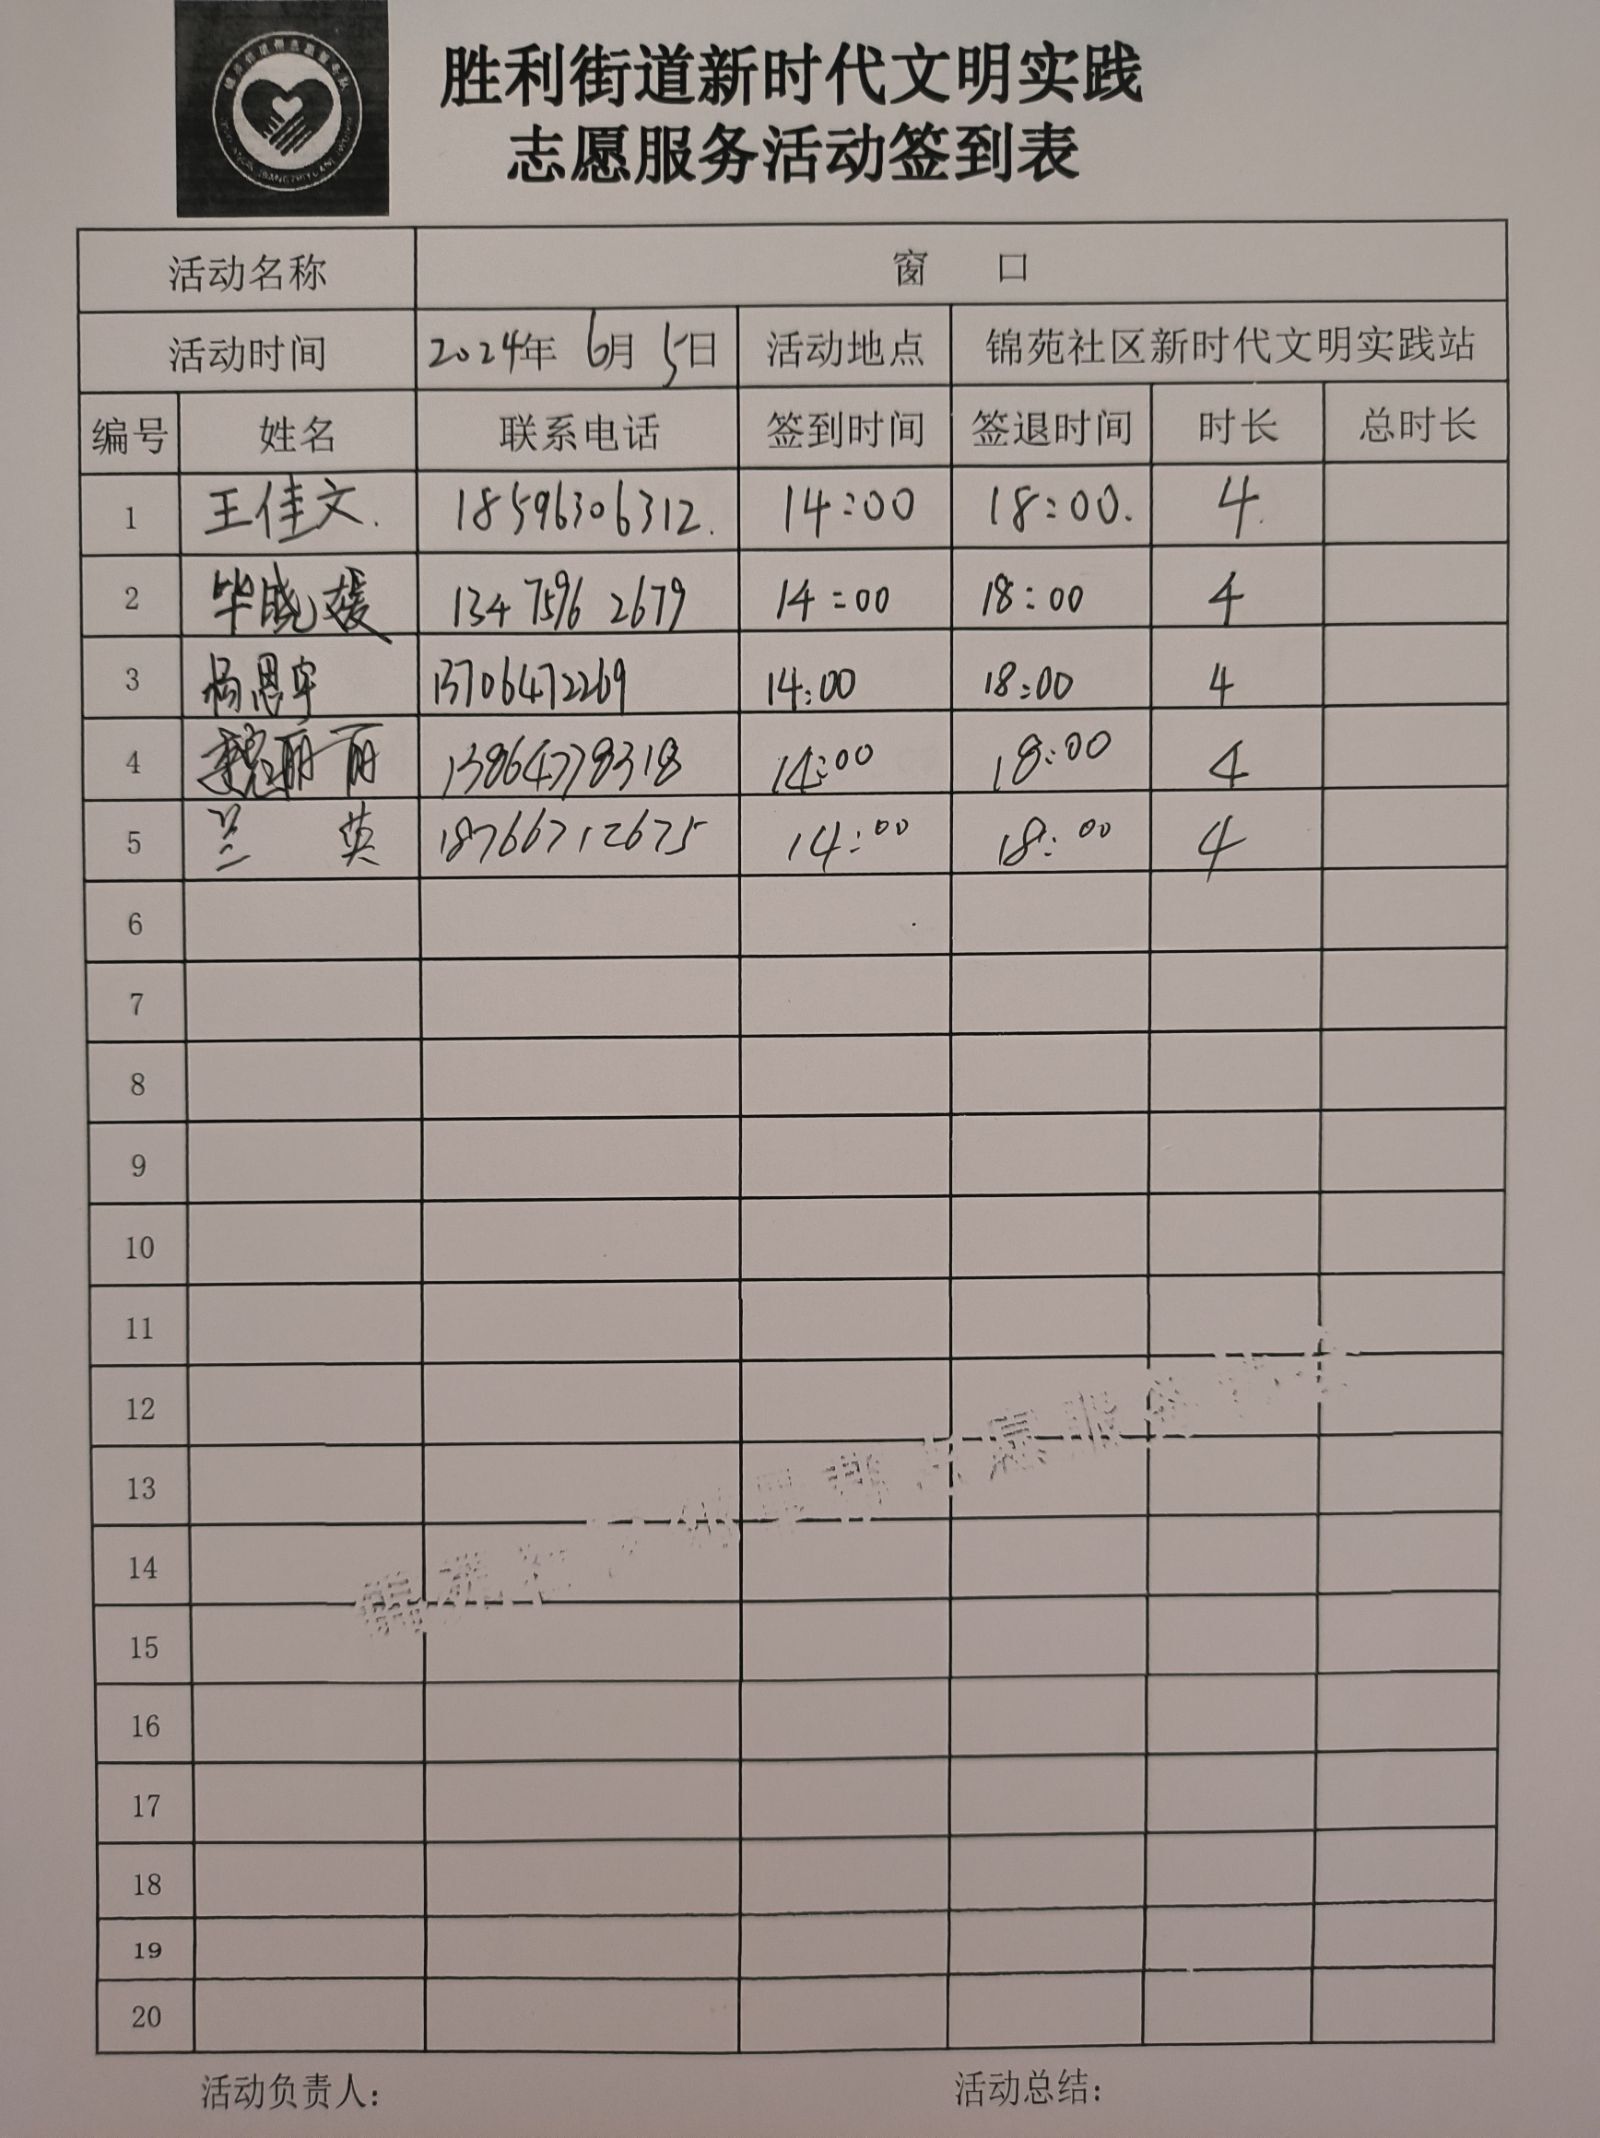 胜利街道新时代文明实践
志愿服务活动签到表
活动名称 窗 口
活动时间 2024年 6月 5日 活动地点 锦苑社区新时代文明实践站
编号 姓名 联系电话 签到时间 签退时间 时长 总时长
1 王佳文. 18596306312. 14:00 18:00. 4.
2 毕晓媛 134 7596 2679 14:00 18:00 4
3 杨思宇 13706472269 14:00 18:00 4
4 魏丽丽 13864778318 14:00 18:00 4
5 兰 英 18766712675 14:00 18:00 4
6
7
8
9
10
11
12
13
14
15
16
17
18
19
20
活动负责人: 活动总结: